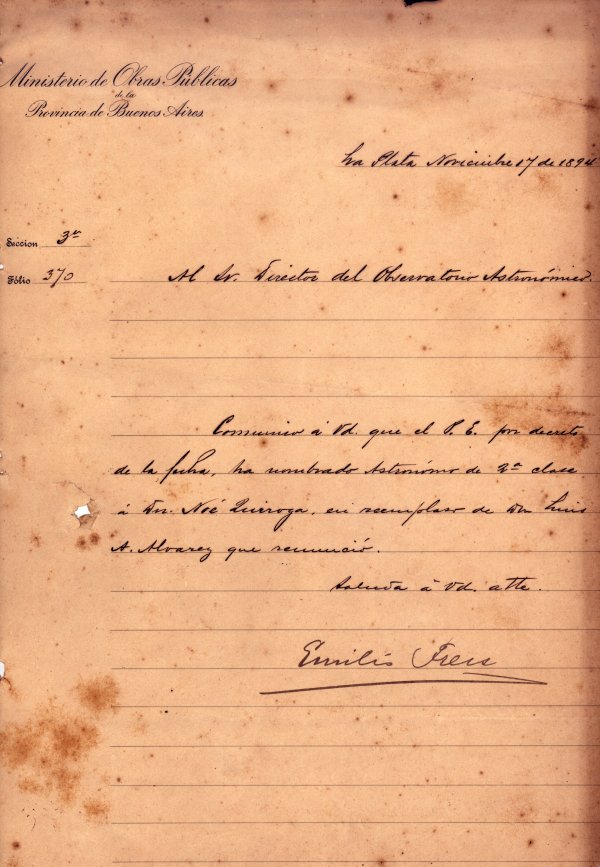 Ministerio de Obras Públicas
de la
Provincia de Buenos Aires
La Plata Noviembre 17 de 1894
Seccion 3ª
Fólio 370
Al Sr. Director del Observatorio Astronómico.
Comunico á Vd. que el P. E. por decreto
de la fecha, ha nombrado Astronómo de 3ª clase
á Dn. Noé Quiroga, en reemplaso de Dn Luis
A. Alvarez que renunció.
Saluda á Vd. atte.
Emilio Frers